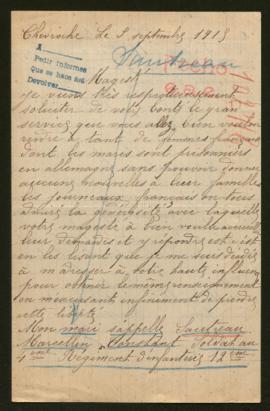 Chevroche Le 3 septembre 1915
A
Pedir informes
Que se haga así
Devolver
Sautreau
Magesté
je viens très respectueusement
soliciter de votre bonté le gran
service que vous allez bien vouloir
rendre à tant de femmes françaises
dont les maris sont prisonniers
en allemagne sans pouvoir donner
aucunes nouvelles à leur famille
les journeaux français on tous
la générosité avec laquelle
votre magesté à bien voulu accueillir
leur demandes et y répondre c'est
en les lisant que je me suis
à m'adresser à votre haute influence
pour obtenir renseignement
en m'excusant infiniment de prendre
cette liberté
Mon mari s'appelle Sautreau
Marcellin Constant Soldat au
4eme Régiment d'infanterie 12eme